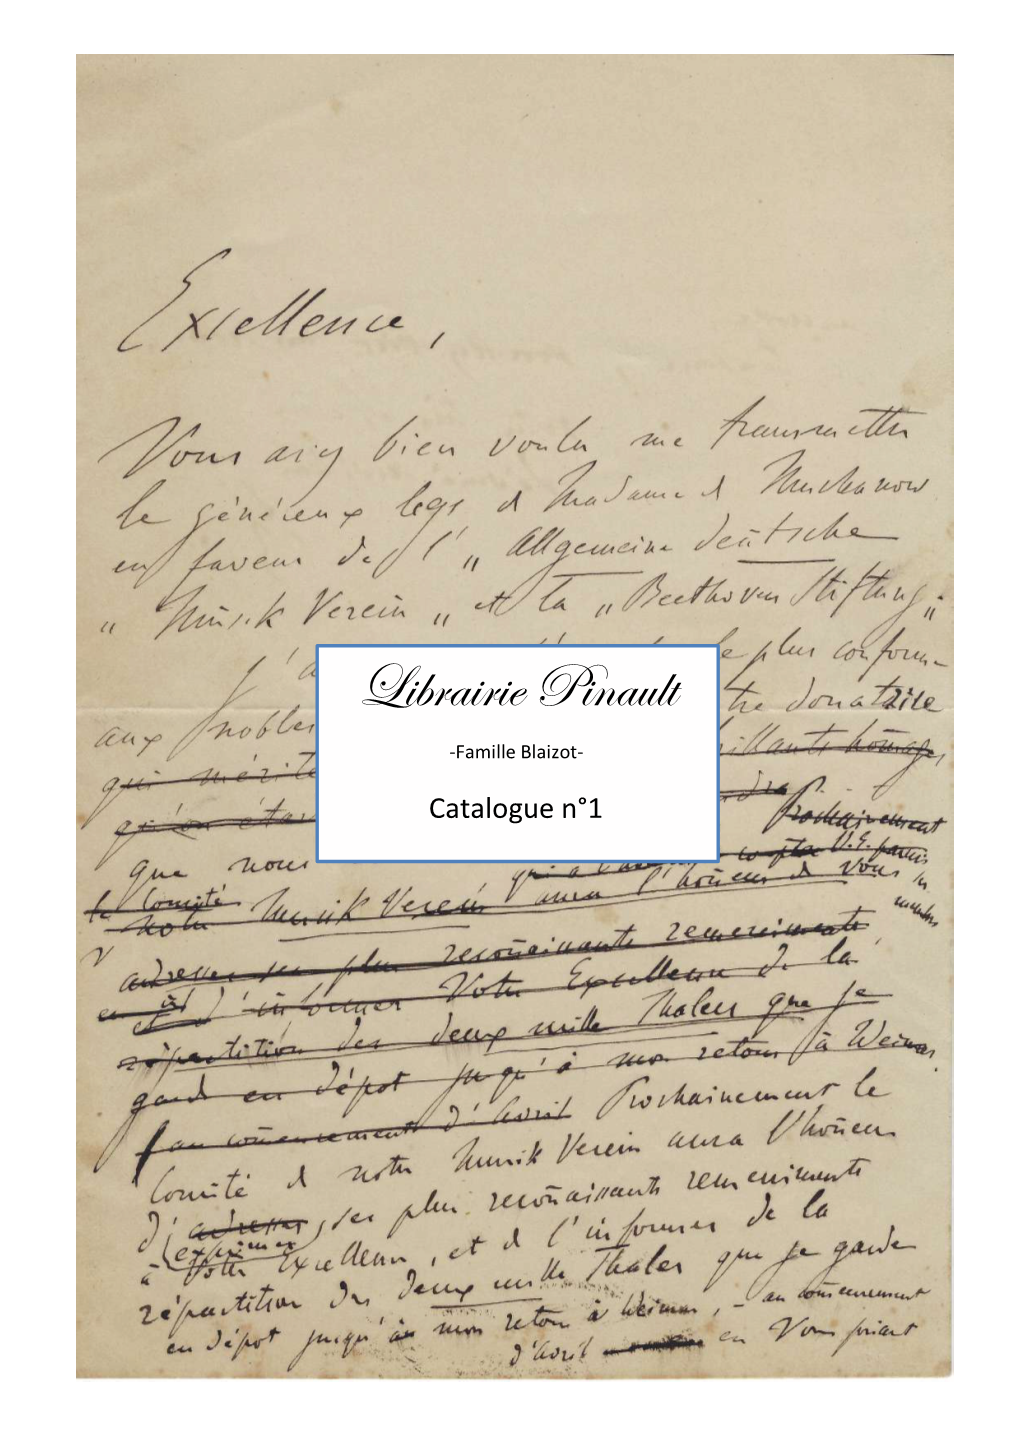 Excellence,
Vous avez bien voulu me transmettre
le généreux legs de Madame de Muchanow
en faveur de l' „ Allgemeine deütsche
„ Müsik Verein „ et la „ Beethoven Stiftung „.
J'a le plus conform-
aux nobles tre donatrice
qui mérite brillants hõmages,
qu'on était
Prochainement
que nous V.E. parmi
le Comité qui a l' compte ses
notre Musik Verein aura l'hoñeur de vous membres
adresser ses plus recoñaissants remerciments
et d'informer Votre Excellence de la
répartition des deux mille Thalers que je
garde en dépot jusqu'à mon retour à Weimar,
au com̃encement d'Avril Prochainement le
Comité de notre Musik Verein aura l'hoñeur
d'adresser ses plus recoñaissants remerciments
(exprimer)
à Votre Excellence, et de l'informer de la
répartition des deux mille Thaler que je garde
en dépot jusqu'à mon retour à Weimar, – au com̃encement
d'Avril en Vous priant
Librairie Pinault
-Famille Blaizot-
Catalogue n°1